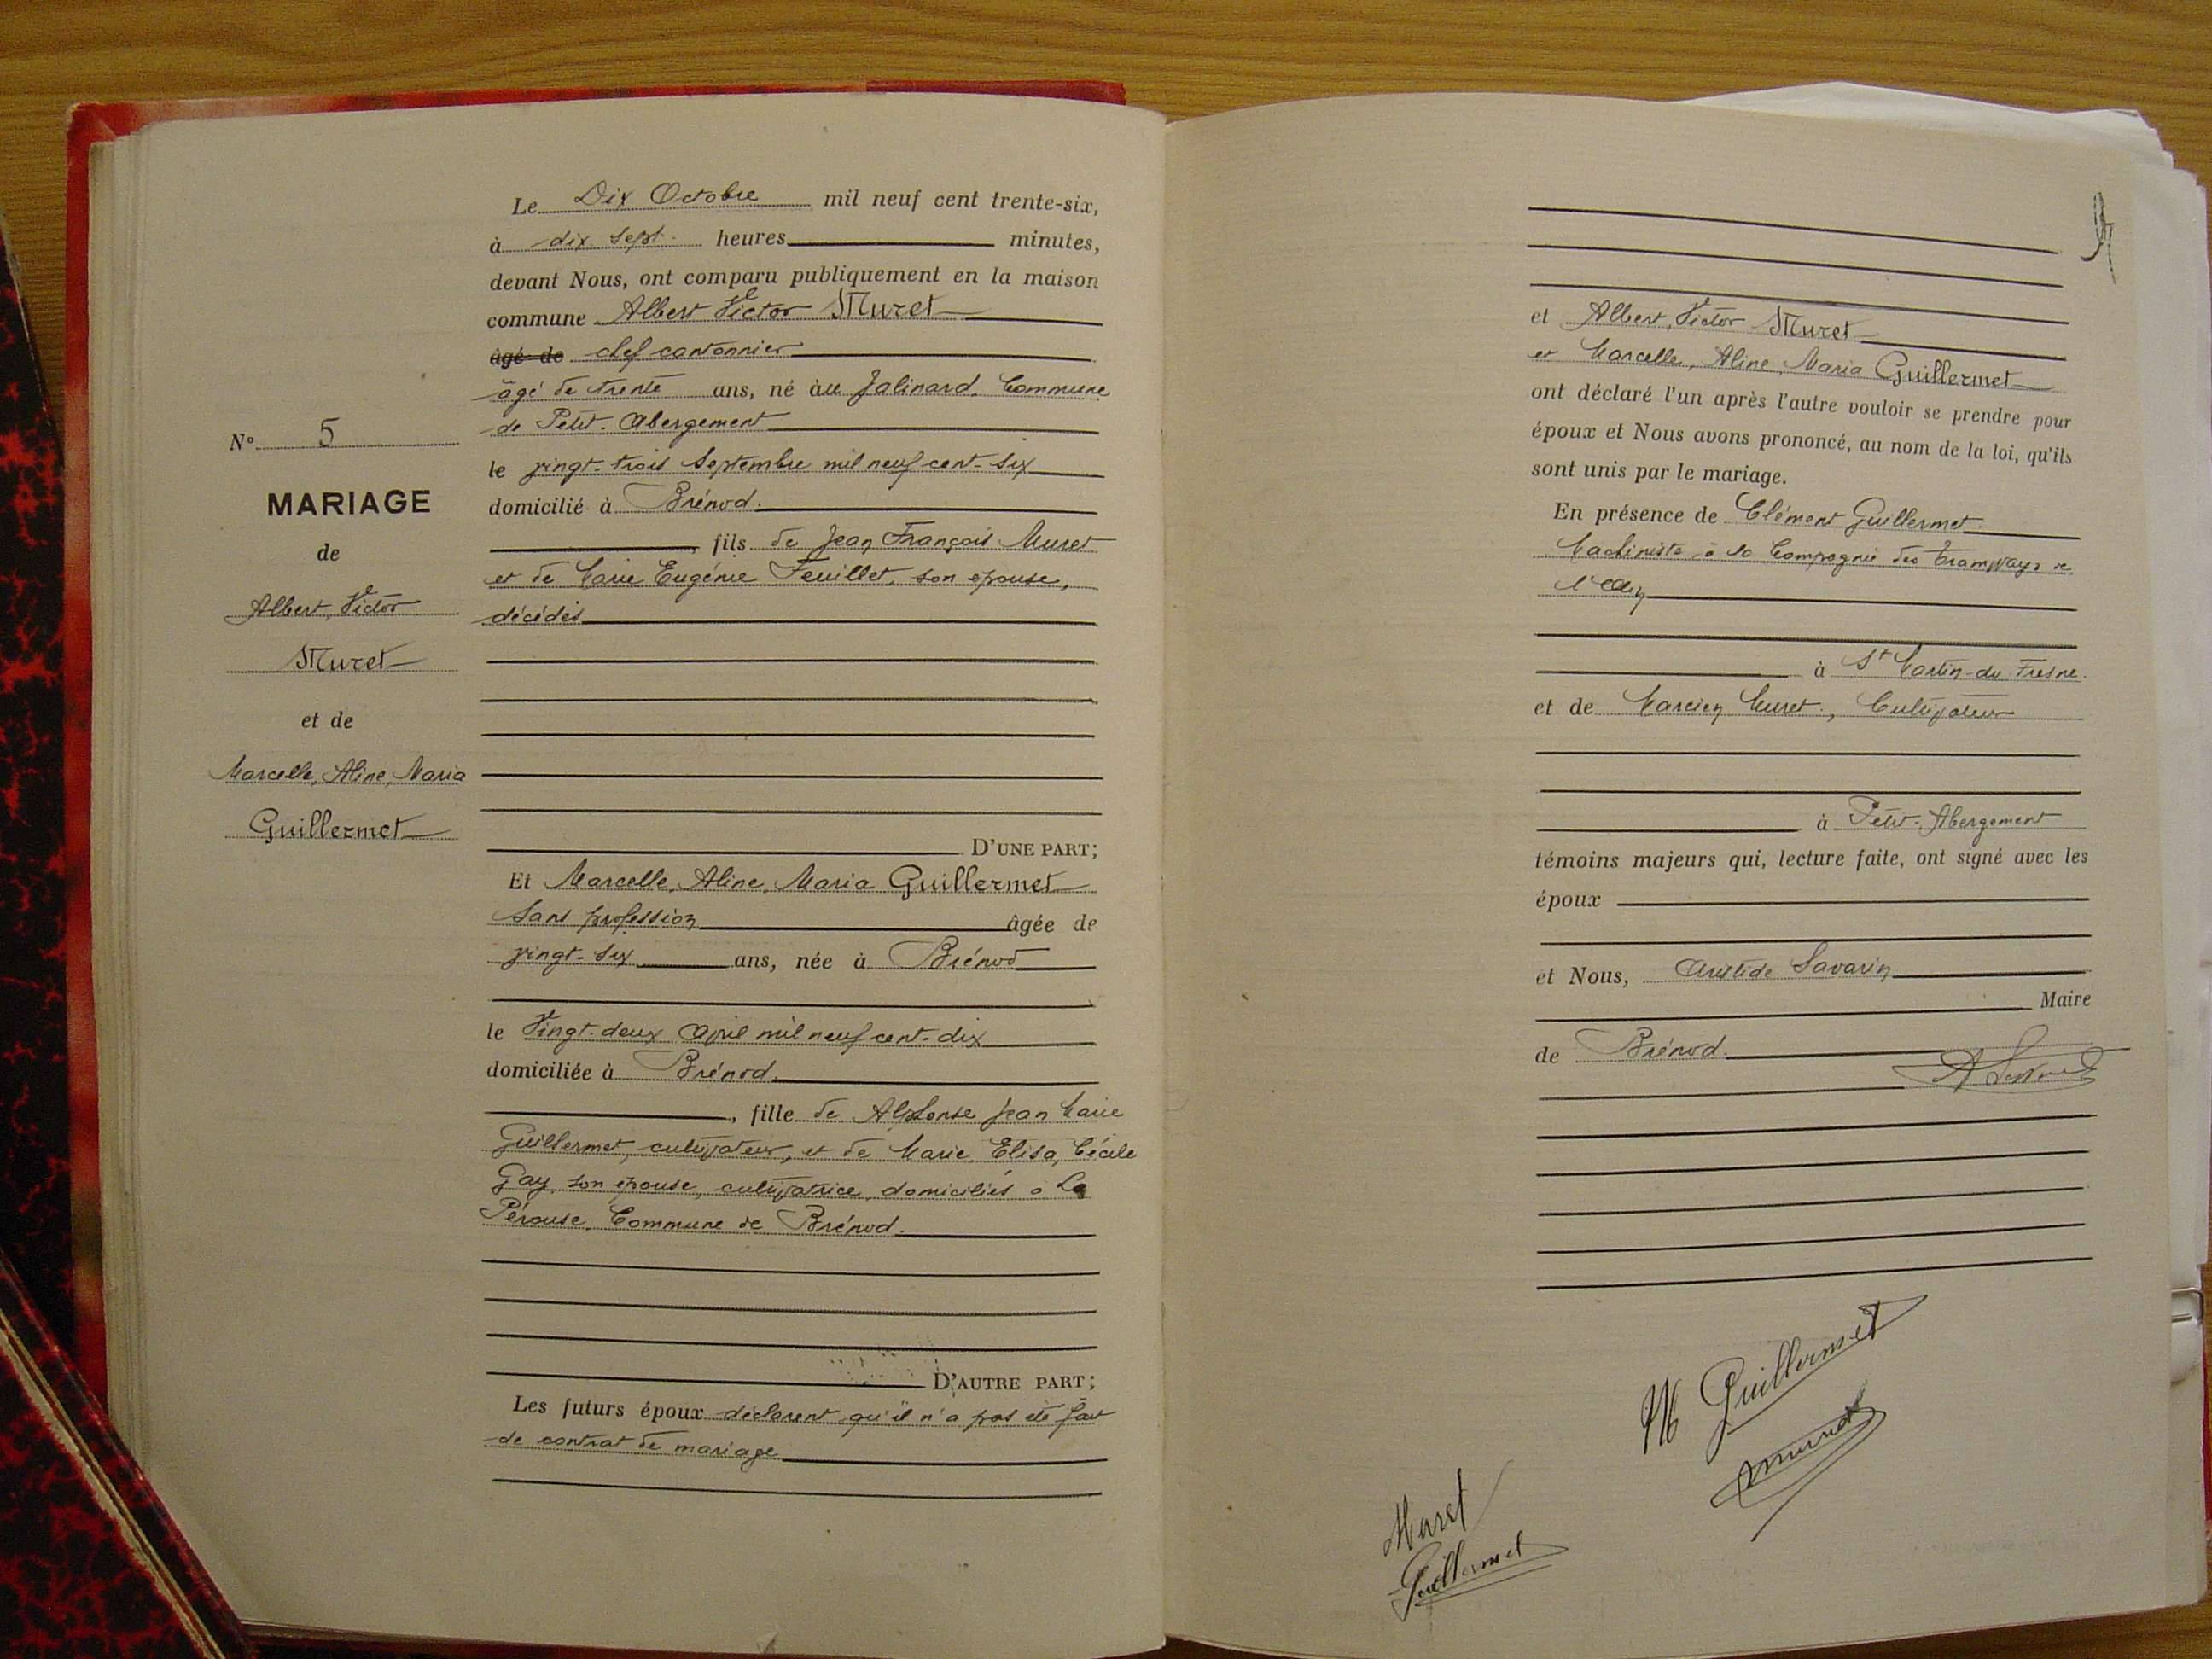 Le Dix Octobre mil neuf cent trente-six,
à dix sept heures minutes,
devant Nous, ont comparu publiquement en la maison
commune Albert Victor Muret
âgé de chef cantonnier
âgé de trente ans, né àu Jalinard, Commune
de Petit-Abergement
le vingt-trois Septembre mil neuf cent-six
domicilié à Brénod.
, fils de Jean François Muret
et de Marie Eugénie Feuillet, son épouse,
décédés
D'UNE PART;
Et Marcelle, Aline, Maria Guillermet
Sans profession âgée de
vingt-six ans, née à Brénod
le Vingt-deux Avril mil neuf cent-dix
domiciliée à Brénod.
, fille de Alphonse Jean Marie
Guillermet, cultivateur, et de Marie Elisa, Cécile
Gay, son épouse, cultivatrice, domiciliés à La
Pérouse, Commune de Brénod.
D'AUTRE PART;
Les futurs époux déclarent qu'il n'a pas été fait
de contrat de mariage
N° 5
MARIAGE
de
Albert, Victor
Muret
et de
Marcelle, Aline, Maria
Guillermet
et Albert, Victor Muret
et Marcelle, Aline, Maria Guillermet
ont déclaré l'un après l'autre vouloir se prendre pour
époux et Nous avons prononcé, au nom de la loi, qu'ils
sont unis par le mariage.
En présence de Clément Guillermet
Machiniste à la Compagnie des Tramways de
l'Ain
à St Martin-du Fresne.
et de Marcien Muret, Cultivateur
à Petit-Abergement
témoins majeurs qui, lecture faite, ont signé avec les
époux
et Nous, Aristide Savarin
Maire
de Brénod.
M Guillermet
Muret
Muret
Guillermet